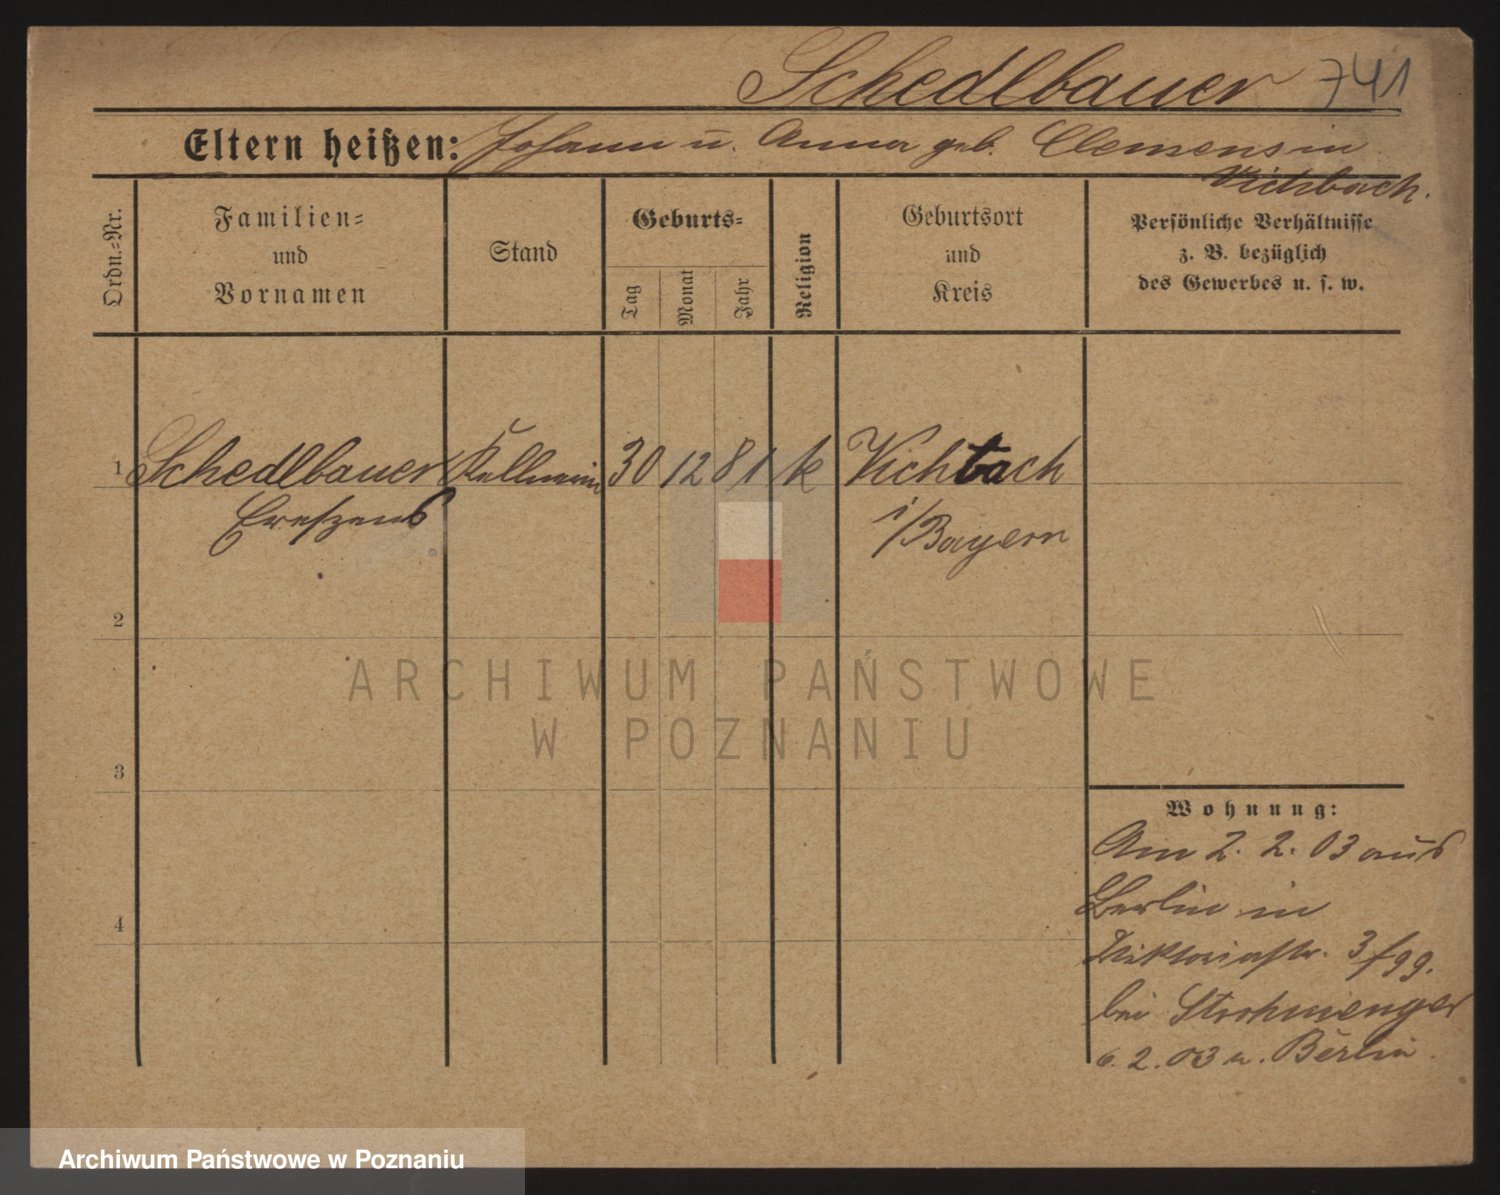 Schedlbauer 741
Eltern heißen: Johann u. Anna geb. Clemens in
Vichbach.
Ordn.-Nr.
Familien-
und
Vornamen
Stand
Geburts-
Tag
Monat
Jahr
Religion
Geburtsort
und
Kreis
Persönliche Verhältnisse
z. B. bezüglich
des Gewerbes u. s. w.
1 Schedlbauer Kellnerin 30 12 81 k Vichtach
i/Bayern
2
3
4
ARCHIWUM PAŃSTWOWE
W POZNANIU
Wohnung:
Am 2. 2. 03 aus
Berlin in
Viktoriastr. 3/
bei Strohmenger
6. 2. 03 n. Berlin.
Archiwum Państwowe w Poznaniu